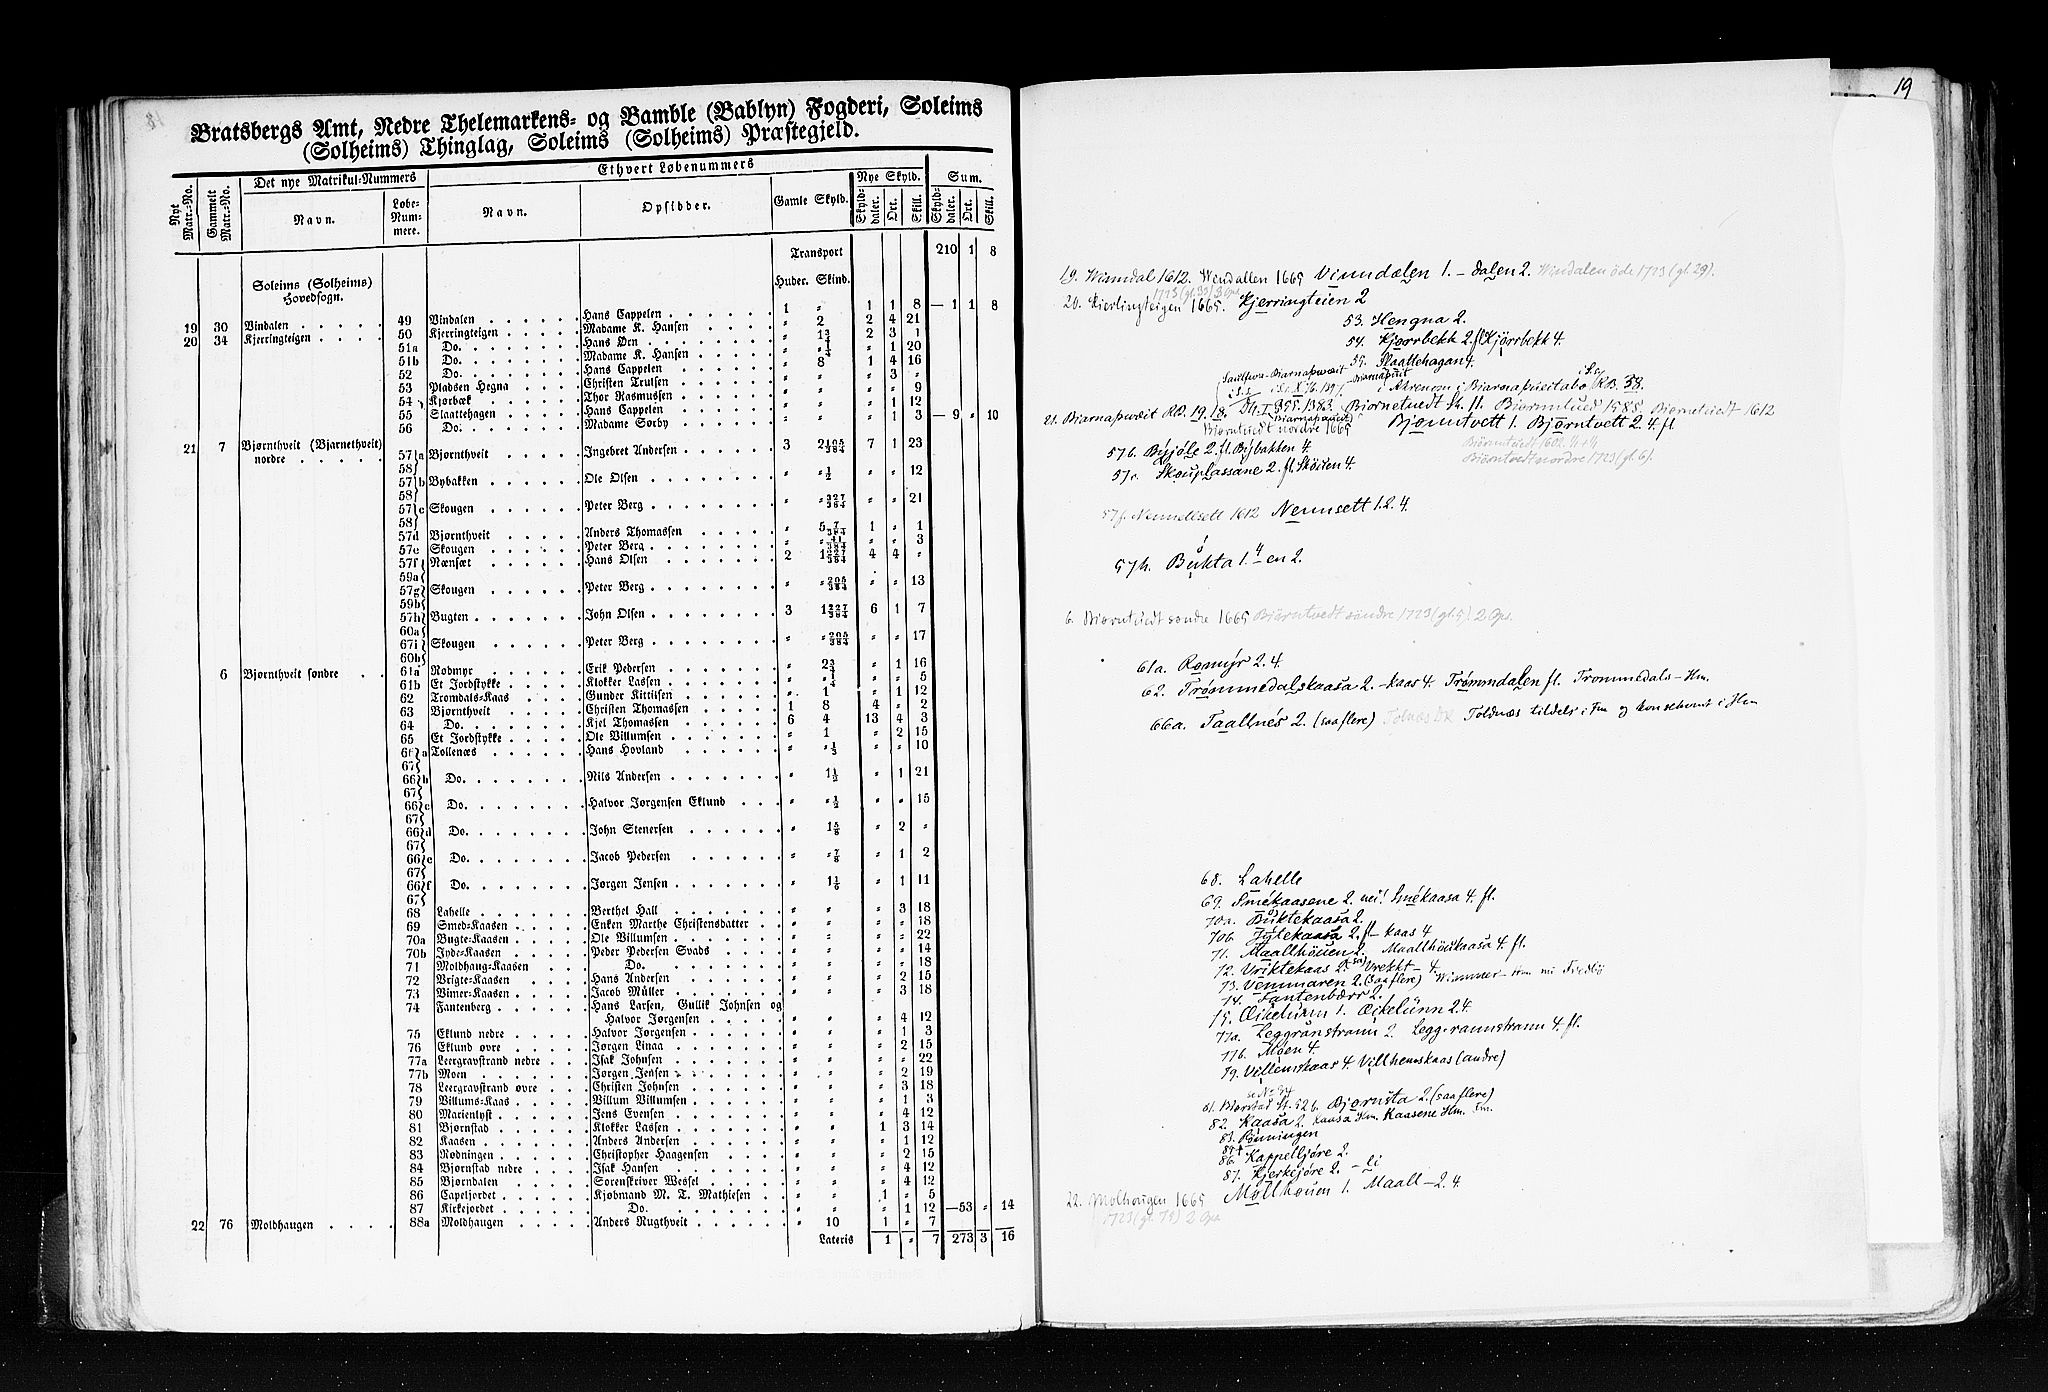 Bratsbergs Amt, Nedre Thelemarkens- og Bamble (Bablyn) Fogderi, Soleims
(Solheims) Thinglag, Soleims (Solheims) Præstegjeld.
Nye Matr.-No.
Gammelt Matr.-No.
Det nye Matrikul-Nummers
Navn.
Løbe-Num-mere.
Ethvert Løbenummers
Navn.
Opsidder.
Gamle Skyld.
Nye Skyld.
Skyld-daler. Ort. Skill.
Sum.
Skyld-daler. Ort. Skill.
Transport 210 1 8
Soleims (Solheims) Huder. Skind.
Hovedsogn.
19 30 Vindalen 49 Vindalen Hans Cappelen 1 " 1 1 8 — 1 1 8
20 34 Kjerringteigen 50 Kjerringteigen Madame K. Hansen " 2 2 4 21
51a Do. Hans Ørn " 1 3/4 2 3 1
51b Do. Madame K. Hansen " 1/4 " 1 20
52 Do. Hans Cappelen " 8 1 4 16
53 Pladsen Hegna Christen Trulsen " " " 3 "
54 Kjørbæk Thor Rasmussen " " " " 9
55 Slaattehagen Hans Cappelen " " " 1 12
56 Do. Madame Sørby " " " 1 3 — 9 " 10
21 7 Bjørnthveit (Bjarnethveit)
nordre 57 58 a Bjørnthveit Ingebret Andersen 3 2 105/384 7 1 23
57 58 b Bybakken Ole Olsen " " 1/2 " " 12
57 58 c Skougen Peter Berg " " 327/384 " " 21
57d Bjørnthveit Anders Thomassen " 5 7/384 1 " 1
57e Skougen Peter Berg " " 41/384 " " 3
57f 59a Nænsæt Hans Olsen 2 1 327/384 4 4 "
57g 59b Skougen Peter Berg " " 205/384 " " 13
57h 60a Bugten John Olsen 3 1 227/384 6 1 7
57i 60b Skougen Peter Berg " " 205/384 " " 17
6 Bjørnthveit søndre 61a Rødmyr Erik Pedersen " 2 3/4 " 1 16
61b Et Jordstykke Klokker Lassen " 1/4 " " 5
62 Tromdals-Kaas Gunder Kittilsen " 1 " 1 12
63 Bjørnthveit Christen Thomassen 1 8 4 " 2
64 Do. Kjel Thomassen 6 4 13 4 3
65 Et Jordstykke Ole Villumsen " 1 " 2 15
66 67 a Tollenæs Hans Hovland " " 1/3 " " 10
66 67 b Do. Nils Andersen " 1 1/2 " 1 21
66 67 c Do. Halvor Jørgensen Eklund " " 1/2 " " 15
66 67 d Do. John Stenersen " 1 5/8 " 2 "
66 67 e Do. Jacob Pedersen " " 7/8 " 1 2
66 67 f Do. Jørgen Jensen " 1 1/6 " 1 11
68 Lahelle Berthel Hall " " " 3 18
69 Smed-Kaasen Enken Marthe Christensdatter " " " " 18
70a Bugte-Kaasen Ole Villumsen " " " " 22
70b Jyde-Kaasen Peder Pedersen Svads " " " " 14
71 Moldhaug-Kaasen Do. " " " " 18
72 Brigte-Kaasen Hans Andersen " " " 2 15
73 Vimer-Kaasen Jacob Müller " " " 3 18
74 Fantenberg Hans Larsen, Gullik Johnsen og
Halvor Jørgensen " " " 4 12
75 Eklund nedre Halvor Jørgensen " " " 1 3
76 Eklund øvre Jørgen Linaa " " " 2 15
77a Leergravstrand nedre Isak Johnsen " " " " 22
77b Moen Jørgen Jensen " " " 2 19
78 Leergravstrand øvre Christen Johnsen " " " 3 18
79 Villums-Kaas Villum Villumsen " " " 1 3
80 Marienlyst Jens Evensen " " " 4 12
81 Bjørnstad Klokker Lassen " " 1 3 14
82 Kaasen Anders Andersen " " " 1 12
83 Rødningen Christopher Haagensen " " " 2 15
84 Bjørnstad nedre Isak Hansen " " " 4 12
85 Bjørndalen Sorenskriver Wessel " " " 4 12
86 Capeljordet Kjøbmand M. T. Mathiesen " " 1 " 5
87 Kirkejordet Do. " " " 1 12 — 53 " 14
22 76 Moldhaugen 88a Moldhaugen Anders Rugthveit " 10 1 " 7
Lateris 1 " 7 273 3 16
19
19. Wimdal 1612. Wendallen 1665 Vinndælen 1. – dalen 2. Windalen öde 1723 (gl. 29).
1723 (gl. 33) 3 Ops
20. Kierlingteigen 1665. Kjerringteien 2
53. Hengna 2.
54. Kjorrbekk 2 fl Kjørrbekk 4.
55. Slaattehagan 4.
21. Biarnaþvæit RB. 19. 18. Bjørnetuedt Bjørnetuedt 1612
Biørntuedt nordre 1665 Bjønntvett 1. Bjørntvett 2. 4 fl.
57b. Byjøle 2. fl. Bybakken 4.
57c. Skouplassane 2. fl. Skøien 4.
Biørntvedt nordre 1723 (gl. 6).
57f. Nenndisett 1612 Nennsett 1. 2. 4.
57h. Bukta 1. 4 en 2.
6. Biørntuedt søndre 1665 Biørntvedt søndre 1723 (gl. 5) 2 Ops.
61a. Romyr 2. 4.
62. Trømmedalskaasa 2. – kaas 4. Trømmdalen fl. Trommedals – Hm.
66a. Taallnés 2. (saa flere) Tolnæs DK Toldnæs tildels i Fm og konsekvent i Hm
68. Lahelle
69. Smékaasene 2. nei! Smékaasa 4. fl.
70a. Buktekaasa 2.
70b. Jytekaasa 2. fl – kaas 4
71. Maallhöuen 2. Maallhöukaasa 4. fl.
72. Vriktekaas 2. Vrekkt – 4.
73. Vemmaren 2. (saa flere) Wimmer –
74. Fantenbærr 2.
75. Œikelunn 1. Œikelünn 2. 4.
77a. Leggránstrann 2. Leggrannstrann 4. fl.
77b. Moen 4.
79. Villemskaas 4. Villhemskaas (andre)
se No 84
81. Biørstad St. 52 b. Bjørnsta 2. (saa flere)
82. Kaasa 2. Kaasa Hm. Kaasene Hm. Fm.
83. Rønningen
84
86. Kappelljøre 2.
87. Kjerkejøre 2. – li
22. Molhougen 1665 Mollhöuen 1. Maall – 2. 4.
1723 (gl. 75) 2 Ops